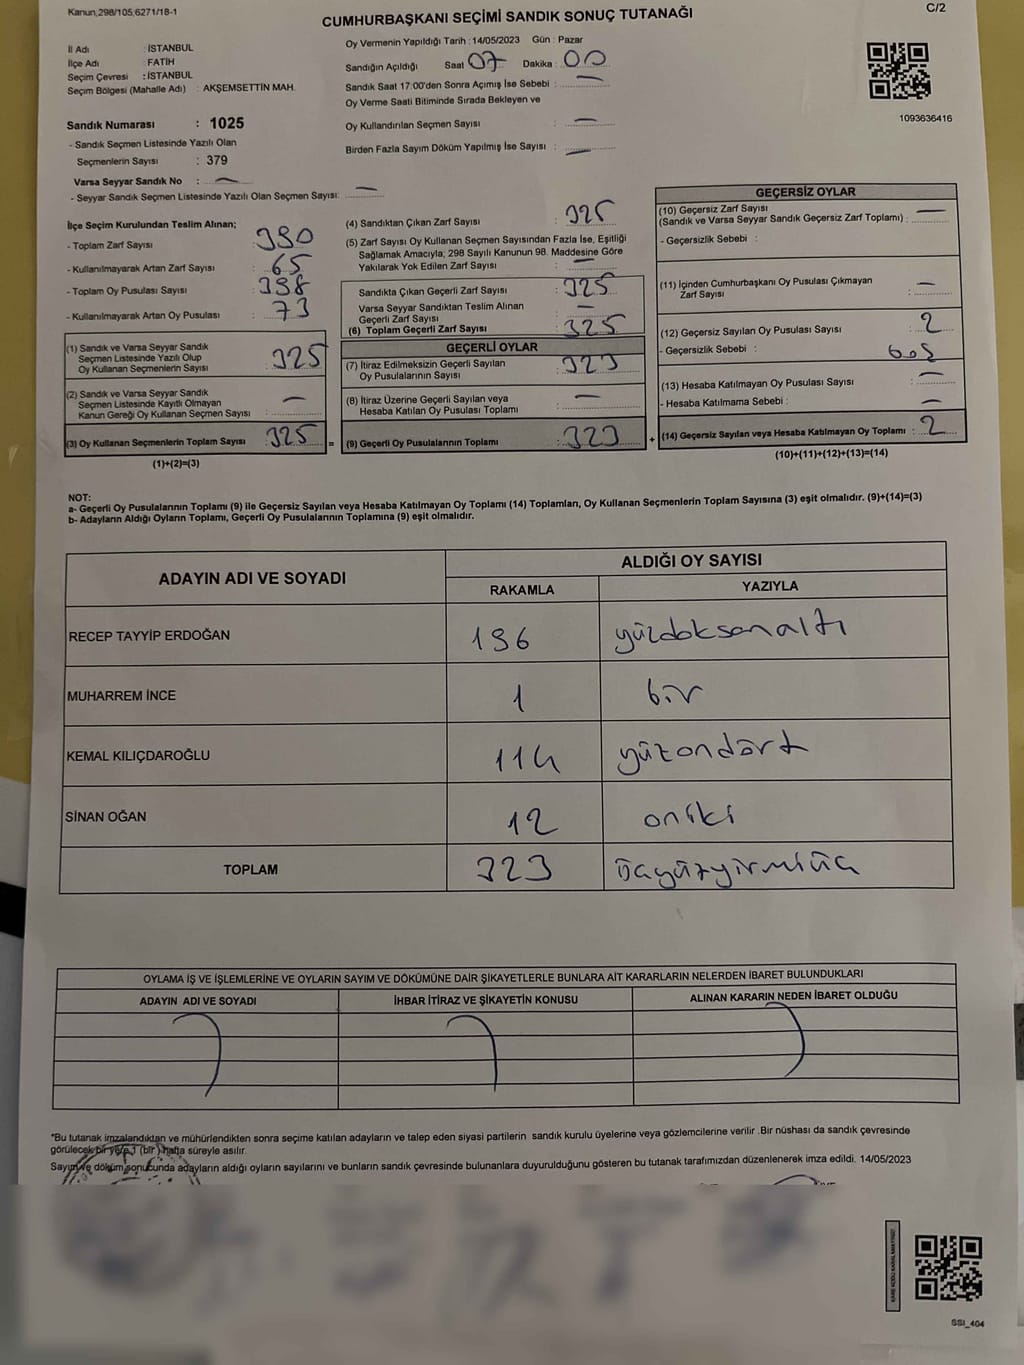 Kanun,298/105,6271/18-1
C/2
CUMHURBAŞKANI SEÇİMİ SANDIK SONUÇ TUTANAĞI
İl Adı : İSTANBUL
İlçe Adı : FATİH
Seçim Çevresi : İSTANBUL
Seçim Bölgesi (Mahalle Adı) : AKŞEMSETTİN MAH.
Sandık Numarası : 1025
- Sandık Seçmen Listesinde Yazılı Olan
Seçmenlerin Sayısı : 379
Varsa Seyyar Sandık No : —
- Seyyar Sandık Seçmen Listesinde Yazılı Olan Seçmen Sayısı: —
Oy Vermenin Yapıldığı Tarih : 14/05/2023 Gün : Pazar
Sandığın Açıldığı Saat 07 Dakika : 00
Sandık Saat 17:00'den Sonra Açımış İse Sebebi : —
Oy Verme Saati Bitiminde Sırada Bekleyen ve
Oy Kullandırılan Seçmen Sayısı : —
Birden Fazla Sayım Döküm Yapılmış İse Sayısı : —
1093636416
İlçe Seçim Kurulundan Teslim Alınan;
- Toplam Zarf Sayısı : 390
- Kullanılmayarak Artan Zarf Sayısı : 65
- Toplam Oy Pusulası Sayısı : 398
- Kullanılmayarak Artan Oy Pusulası : 73
(1) Sandık ve Varsa Seyyar Sandık
Seçmen Listesinde Yazılı Olup
Oy Kullanan Seçmenlerin Sayısı : 325
(2) Sandık ve Varsa Seyyar Sandık
Seçmen Listesinde Kayıtlı Olmayan
Kanun Gereği Oy Kullanan Seçmen Sayısı : —
(3) Oy Kullanan Seçmenlerin Toplam Sayısı : 325
(1)+(2)=(3)
(4) Sandıktan Çıkan Zarf Sayısı : 325
(5) Zarf Sayısı Oy Kullanan Seçmen Sayısından Fazla İse, Eşitliği
Sağlamak Amacıyla; 298 Sayılı Kanunun 98. Maddesine Göre
Yakılarak Yok Edilen Zarf Sayısı : —
Sandıkta Çıkan Geçerli Zarf Sayısı : 325
Varsa Seyyar Sandıktan Teslim Alınan
Geçerli Zarf Sayısı : —
(6) Toplam Geçerli Zarf Sayısı : 325
GEÇERLİ OYLAR
(7) İtiraz Edilmeksizin Geçerli Sayılan
Oy Pusulalarının Sayısı : 323
(8) İtiraz Üzerine Geçerli Sayılan veya
Hesaba Katılan Oy Pusulası Toplamı : —
= (9) Geçerli Oy Pusulalarının Toplamı : 323
GEÇERSİZ OYLAR
(10) Geçersiz Zarf Sayısı
(Sandık ve Varsa Seyyar Sandık Geçersiz Zarf Toplamı) : —
- Geçersizlik Sebebi :
(11) İçinden Cumhurbaşkanı Oy Pusulası Çıkmayan
Zarf Sayısı : —
(12) Geçersiz Sayılan Oy Pusulası Sayısı : 2
- Geçersizlik Sebebi : boş
(13) Hesaba Katılmayan Oy Pusulası Sayısı : —
- Hesaba Katılmama Sebebi : —
+ (14) Geçersiz Sayılan veya Hesaba Katılmayan Oy Toplamı : 2
(10)+(11)+(12)+(13)=(14)
NOT:
a- Geçerli Oy Pusulalarının Toplamı (9) ile Geçersiz Sayılan veya Hesaba Katılmayan Oy Toplamı (14) Toplamları, Oy Kullanan Seçmenlerin Toplam Sayısına (3) eşit olmalıdır. (9)+(14)=(3)
b- Adayların Aldığı Oyların Toplamı, Geçerli Oy Pusulalarının Toplamına (9) eşit olmalıdır.
ADAYIN ADI VE SOYADI
ALDIĞI OY SAYISI
RAKAMLA YAZIYLA
RECEP TAYYİP ERDOĞAN 196 yüzdoksanaltı
MUHARREM İNCE 1 bir
KEMAL KILIÇDAROĞLU 114 yüzondört
SİNAN OĞAN 12 oniki
TOPLAM 323 üçyüzyirmiüç
OYLAMA İŞ VE İŞLEMLERİNE VE OYLARIN SAYIM VE DÖKÜMÜNE DAİR ŞİKAYETLERLE BUNLARA AİT KARARLARIN NELERDEN İBARET BULUNDUKLARI
ADAYIN ADI VE SOYADI İHBAR İTİRAZ VE ŞİKAYETİN KONUSU ALINAN KARARIN NEDEN İBARET OLDUĞU
*Bu tutanak imzalandıktan ve mühürlendikten sonra seçime katılan adayların ve talep eden siyasi partilerin sandık kurulu üyelerine veya gözlemcilerine verilir .Bir nüshası da sandık çevresinde
görülecek bir yere 1 (bir ) hafta süreyle asılır.
Sayım ve döküm sonucunda adayların aldığı oyların sayılarını ve bunların sandık çevresinde bulunanlara duyurulduğunu gösteren bu tutanak tarafımızdan düzenlenerek imza edildi. 14/05/2023
SSI_404